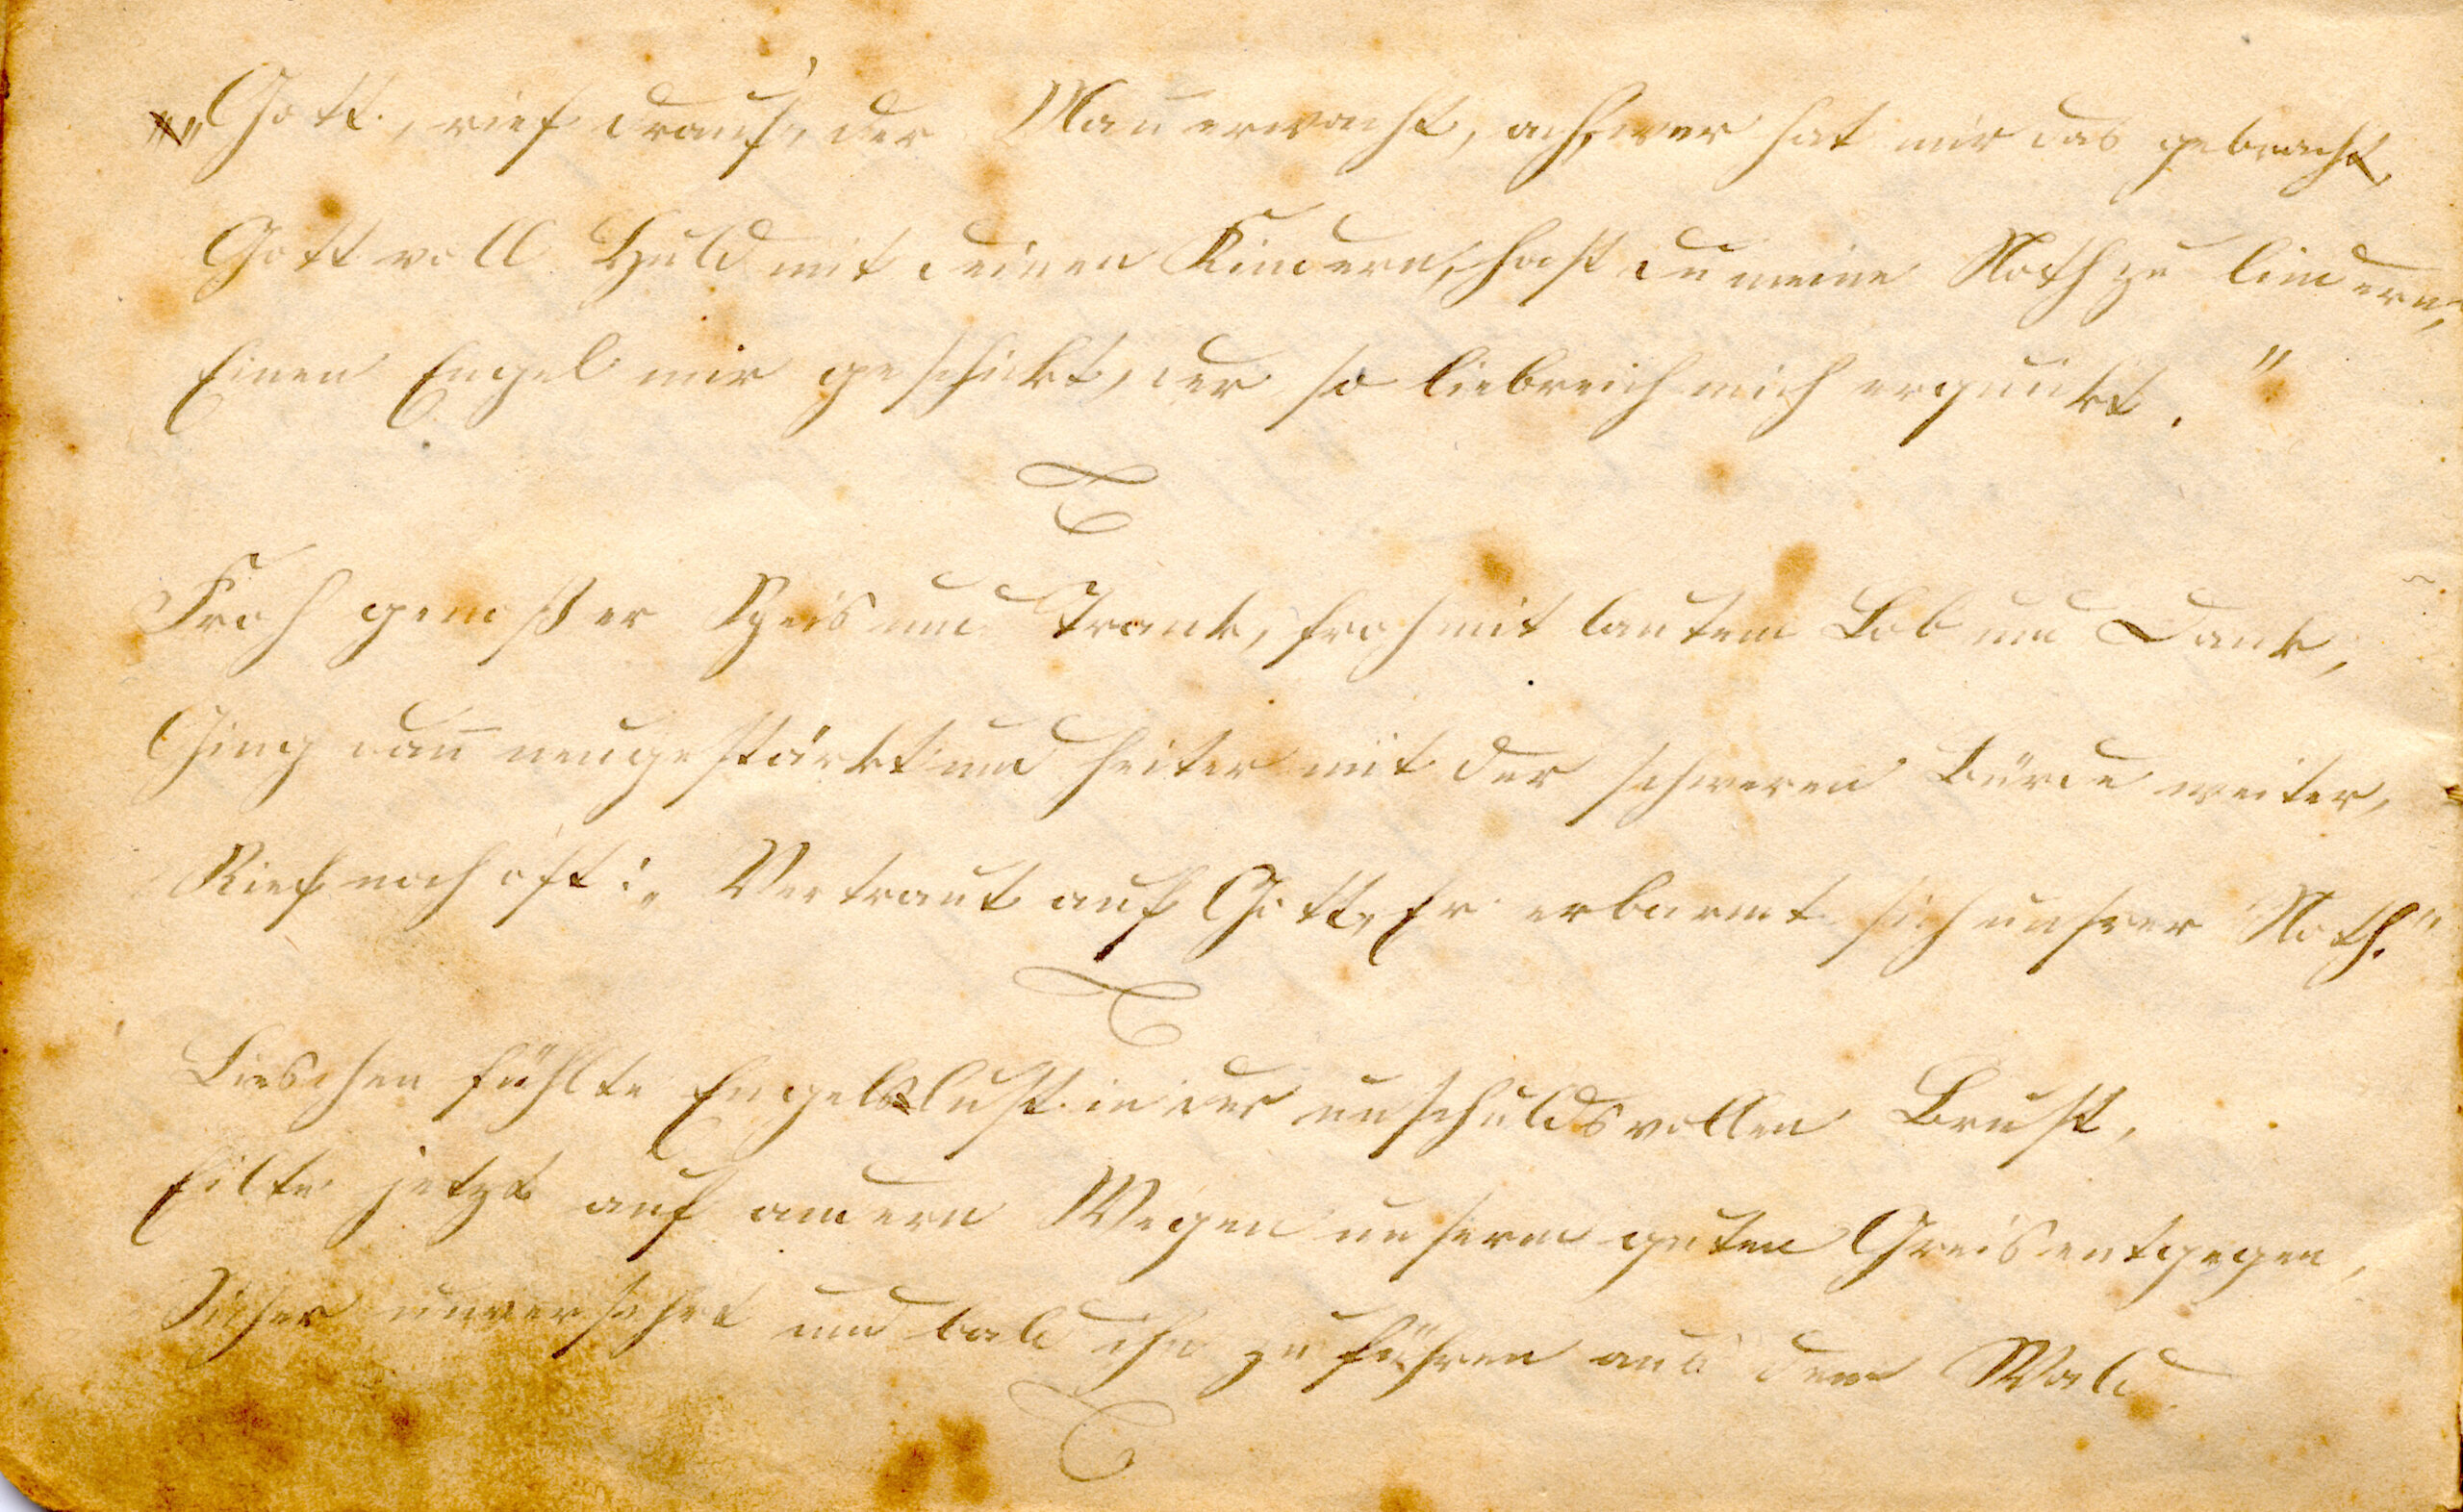 „Gott, rief drauf, der Mañ erwacht, ach, wer hat mir das gebracht,
Gott voll Huld mit deinen Kindern, hast du meine Noth zu lindern,
Einen Engel mir geschickt, der so liebreich mich erquickt."
Froh genoß er Speis und Trank, froh mit lautem Lob und Dank,
Ging dañ neugestärkt und heiter mit der schweren Bürde weiter,
Rief noch oft: „Vertraut auf Gott, Er erbarmt sich unsrer Noth."
Lieschen fühlte Engelslust in der unschuldsvollen Brust,
Eilte jetzt auf andern Wegen unserm guten Greis entgegen,
Sicher unversehrt und bald ihn zu führen aus dem Wald